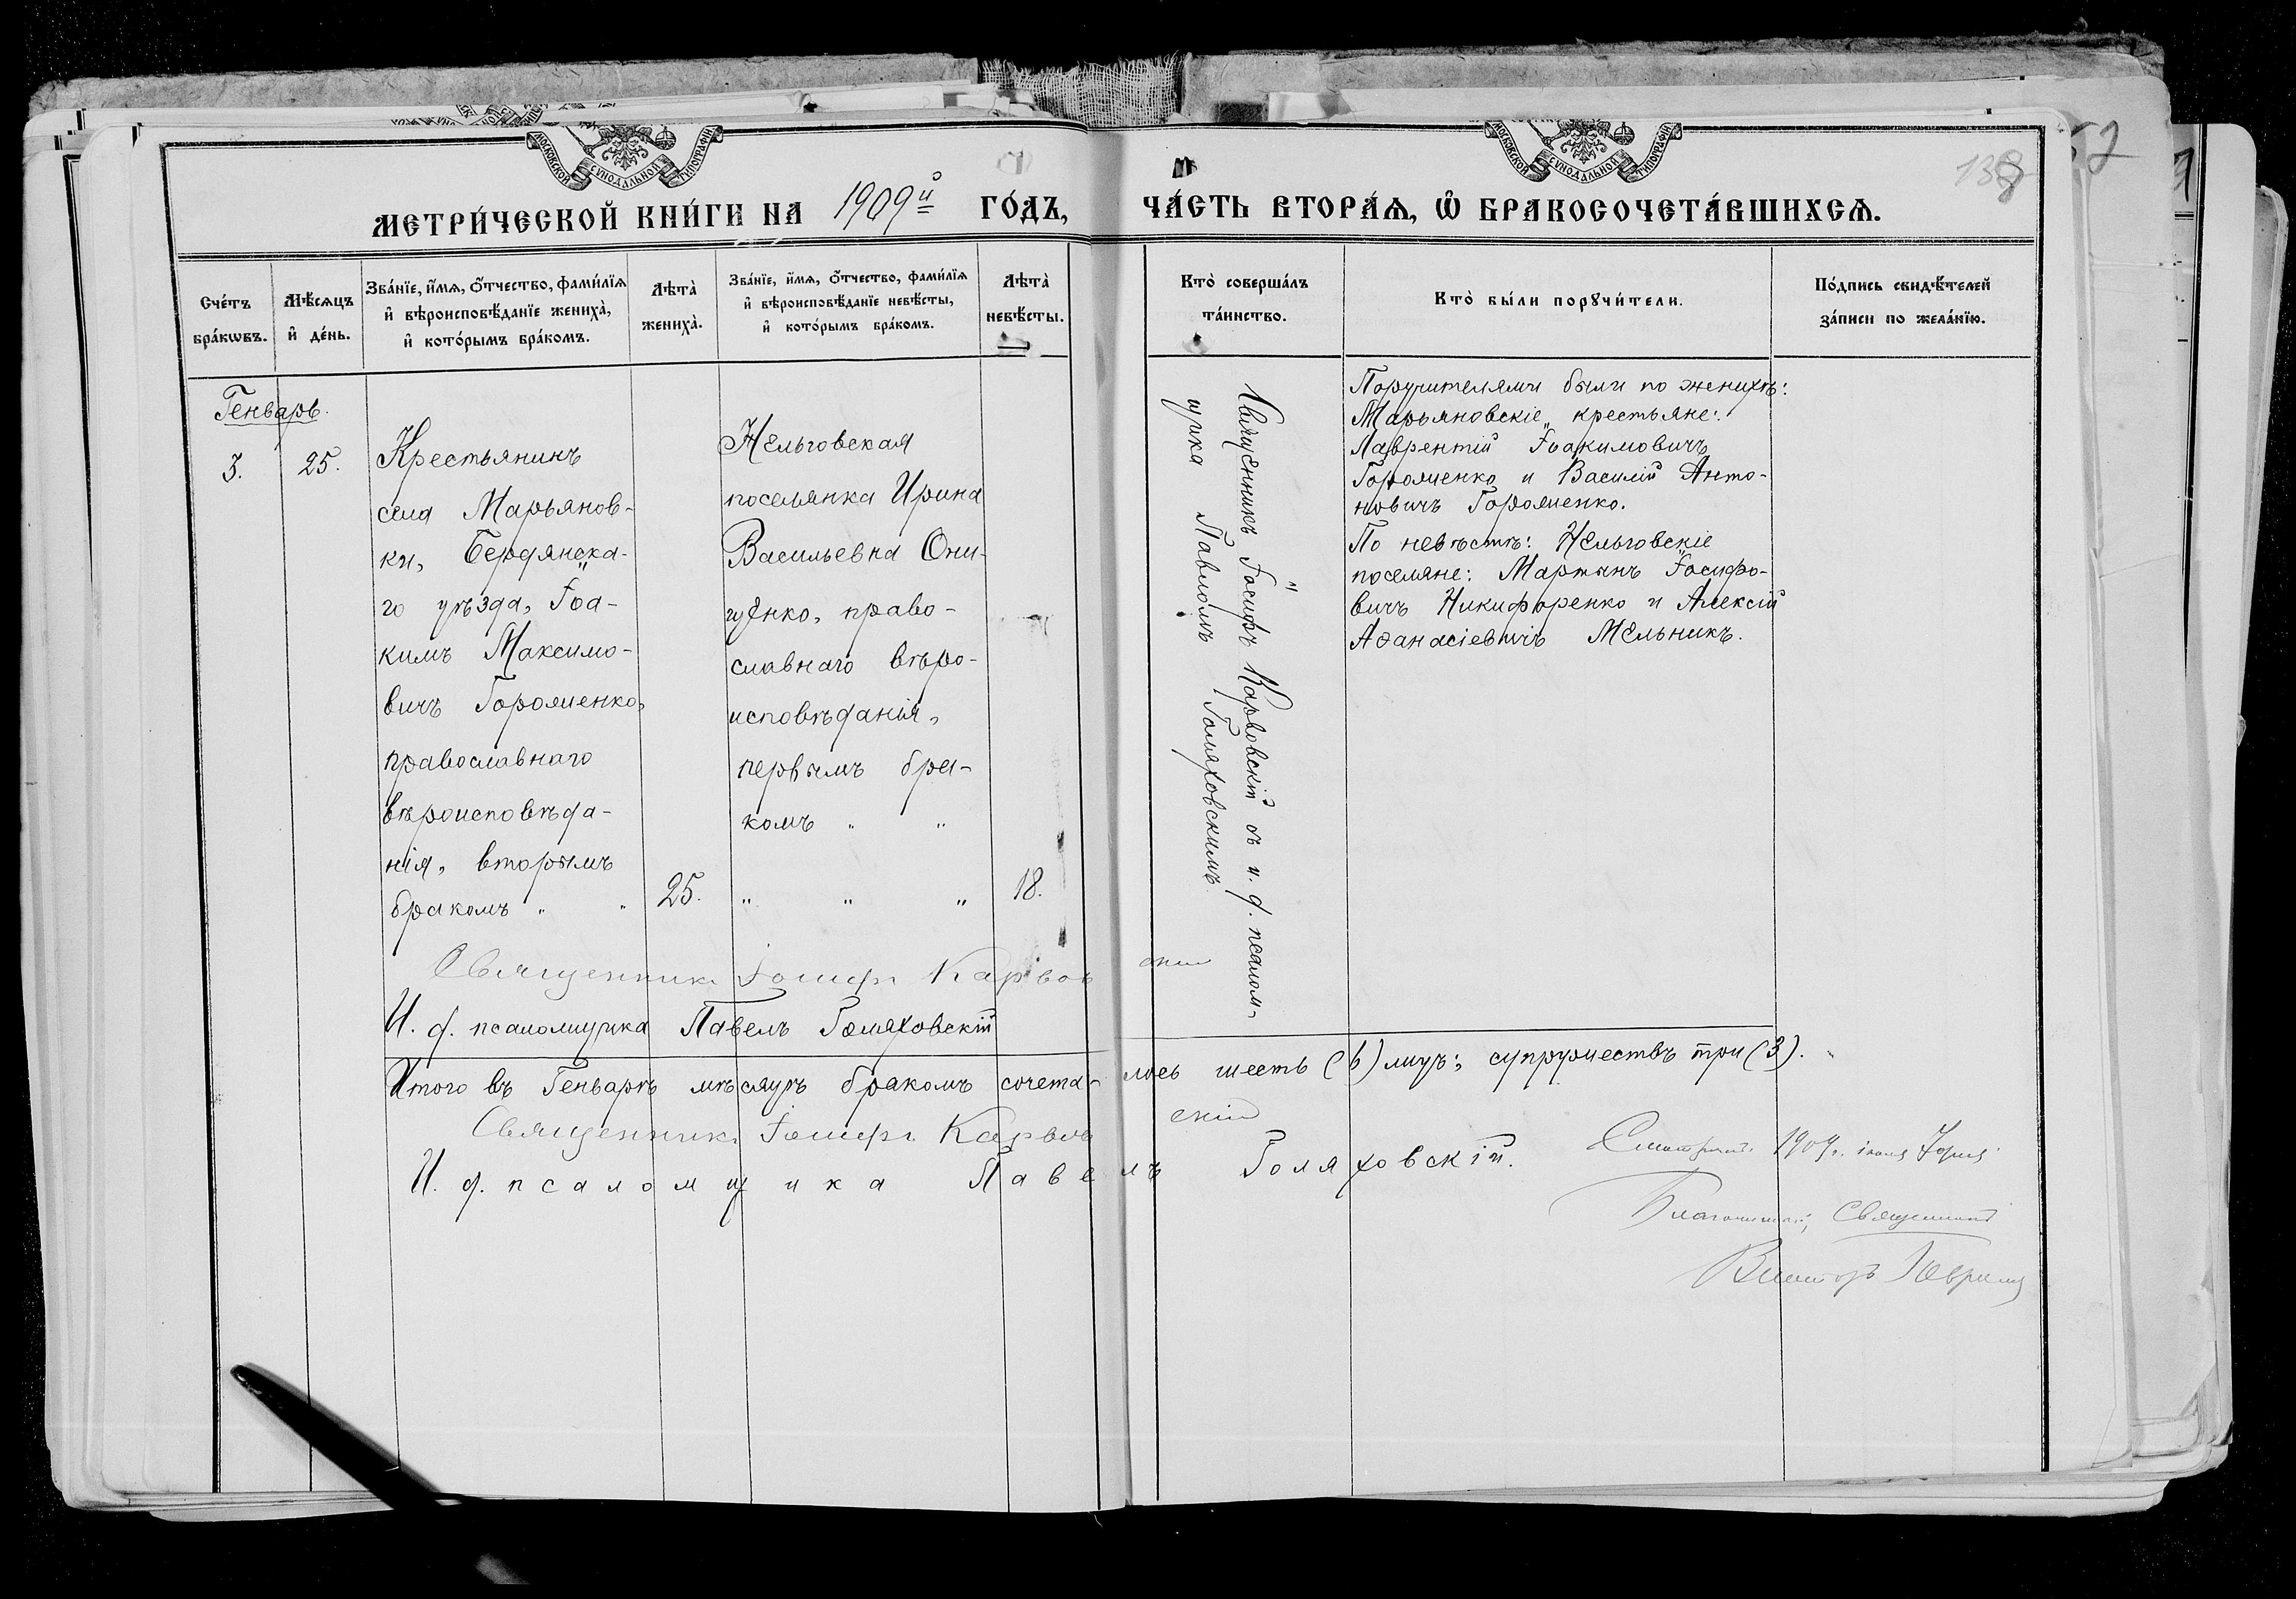 МОСКОВСКОЙ СѴНОДАЛЬНОЙ ТИПОГРАФІИ
МОСКОВСКОЙ СѴНОДАЛЬНОЙ ТИПОГРАФІИ
138
МЕТРИ́ЧЕСКОЙ КНИ́ГИ НА 1909й ГО́ДЪ, ЧА́СТЬ ВТОРА́Ѧ, Ѡ҆ БРАКОСОЧЕТА́ВШИХСѦ.
Сче́тъ бра́кѡвъ.
Мѣ́сѧцъ и҆ де́нь.
Зва́нїе, и҆́мѧ, ѻ҆́тчество, фами́лїѧ
и҆ вѣроисповѣ́данїе жениха̀,
и҆ кото́рымъ бра́комъ.
Лѣта̀ жениха̀.
Зва́нїе, и҆́мѧ, ѻ҆́тчество, фами́лїѧ
и҆ вѣроисповѣ́данїе невѣ́сты,
и҆ кото́рымъ бра́комъ.
Лѣта̀ невѣ́сты.
Кто̀ соверша́лъ
та́инство.
Кто̀ бы́ли порꙋчи́тели.
По́дпись свидѣ́телей
за́писи по жела́нїю.
Генварь.
3.
25.
Крестьянинъ
села Марьянов-
ки, Бердянска-
го уѣзда, Іоа-
кимъ Максимо-
вичъ Горошенко,
православнаго
вѣроисповѣда-
нія, вторымъ
бракомъ " "
25.
Нельговская
поселянка Ирина
Васильевна Они-
щенко, право-
славнаго вѣро-
исповѣданія,
первымъ бра-
комъ " "
" " "
18.
Священникъ Іосифъ Карвовскій съ и. д. псалом-
щика Павломъ Голяховскимъ
Поручителями были по женихѣ:
Марьяновскіе крестьяне:
Лаврентій Іоакимовичъ
Горошенко и Василій Анто-
новичъ Горошенко.
По невѣстѣ: Нельговскіе
поселяне: Мартинъ Іосифо-
вичъ Никифоренко и Алексій
Аѳанасіевичъ Мельникъ.
Священникъ Іосифъ Карвовскій
И. д. псаломщика Павелъ Голяховскій
Итого въ Генварѣ мѣсяцѣ бракомъ сочета-лось шесть (6) лицъ; супружествъ три (3).
Священникъ Іосифъ Карвовскій
И. д. псаломщика Павелъ Голяховскій.
1909 г.
Благочинный, Священникъ
Викторъ